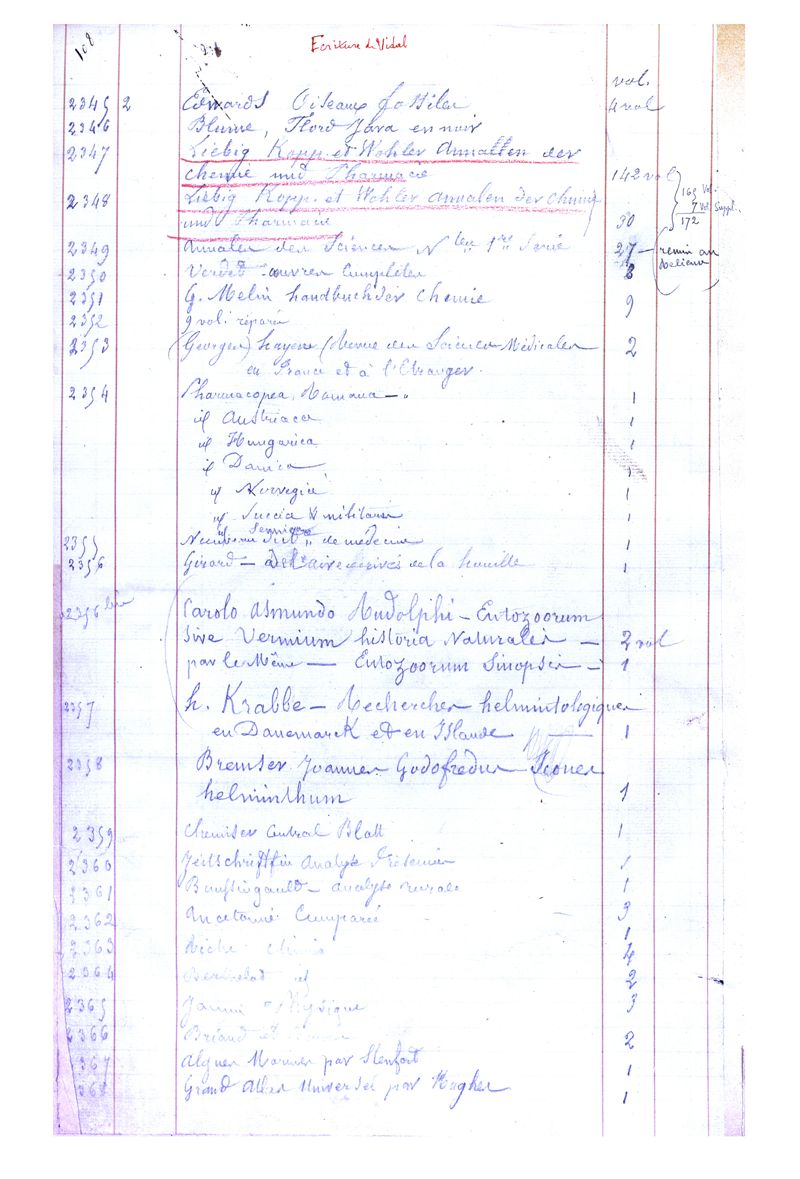 108
Ecriture de Vidal
vol.
2345 2 Edwards Oiseaux fossiles 4 vol
2346 Blume, Flora Java en noir
2347 Liebig Kopp et Wohler Annalen der
chemie und Pharmacie 142 vol
2348 Liebig Kopp. et Wohler annalen der chimie
und Pharmacie 30
165 Vol.
7 Vol. Suppl.
172
2349 Annales des Sciences Nlles 1re Serie 27 — remis au
relieur
2350 Verdet œuvres Complètes 8
2351 G. Melin handbuch der Chemie 9
2352 9 vol. réparés
2353 (Georges) hayem (Revue des Sciences Médicales 2
en France et à l'Etranger.
2354 Pharmacopea, Romana — 1
id Austriaca 1
id Hungarica 1
id Danica 1
id Norvegia 1
id Suecia militaris 1
2355 Nouveau Dict de médecine 1
2356 Girard — dérivés de la houille 1
2356 bis Carolo Asmundo Rudolphi — Entozoorum
sive Vermium historia Naturales — 2 vol
par le Même — Entozoorum Sinopsis — 1
2357 h. Krabbe — Recherches helmintologiques
en Danemarck et en Islande 1
2358 Bremser Joannes Godofredus Icones
helminthum 1
2359 Chemiser Central Blatt 1
2360 Zeitschrift für Analyse Fresenius 1
2361 Boussingault — analyse rurale 1
2362 Anatomie Comparée 3
2363 Riche chimie 1
4
2364 Berthelot id 2
2365 Jamin Physique 3
2366 Briand et 2
367 Algues Marines par Stenfort 1
368 Grand Atlas Universel par Hughes 1